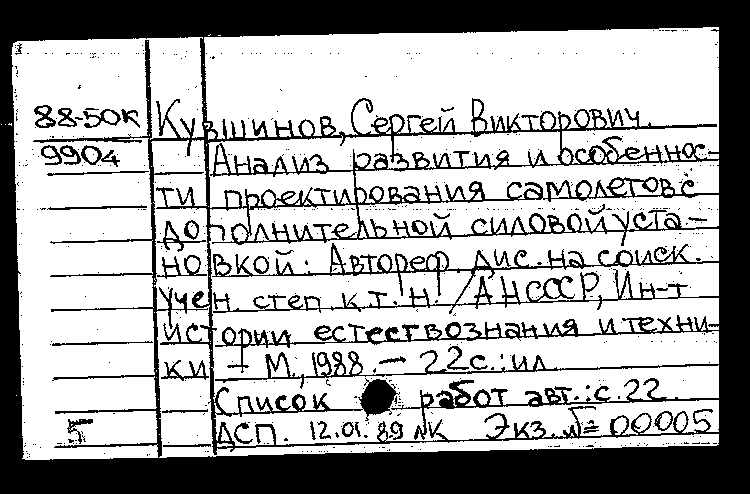 88-50к Кувшинов, Сергей Викторович.
9904 Анализ развития и особеннос-
ти проектирования самолетов с
дополнительной силовой уста-
новкой: Автореф. дис. на соиск.
учен. степ. к.т.н. / АН СССР, Ин-т
истории естествознания и техни-
ки. - М., 1988. - 22 с.: ил.
Список работ авт.: с. 22.
5 ДСП. 12.01.89 ЛК Экз. № 00005